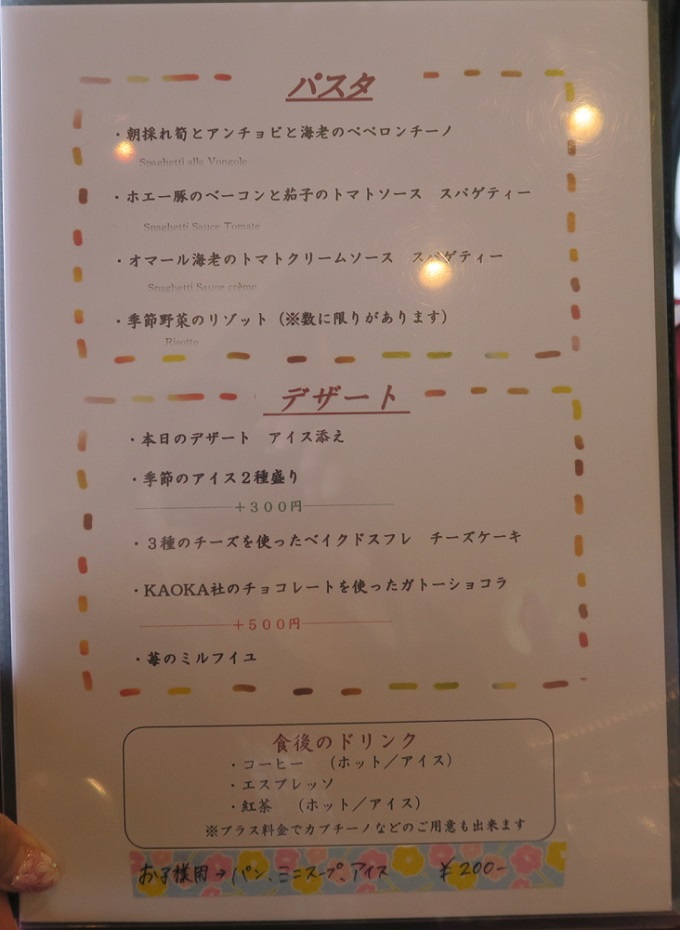 パスタ
・朝採れ筍とアンチョビと海老のペペロンチーノ
Spaghetti alle Vongole
・ホエー豚のベーコンと茄子のトマトソース　スパゲティー
Spaghetti Sauce Tomate
・オマール海老のトマトクリームソース　スパゲティー
Spaghetti Sauce crème
・季節野菜のリゾット（※数に限りがあります）
Risotto
デザート
・本日のデザート　アイス添え
・季節のアイス２種盛り
＋３００円
・３種のチーズを使ったベイクドスフレ　チーズケーキ
・KAOKA社のチョコレートを使ったガトーショコラ
＋５００円
・苺のミルフイユ
食後のドリンク
・コーヒー　（ホット／アイス）
・エスプレッソ
・紅茶　（ホット／アイス）
※プラス料金でカプチーノなどのご用意も出来ます
お子様用→パン、ミニスープ、アイス　￥200-